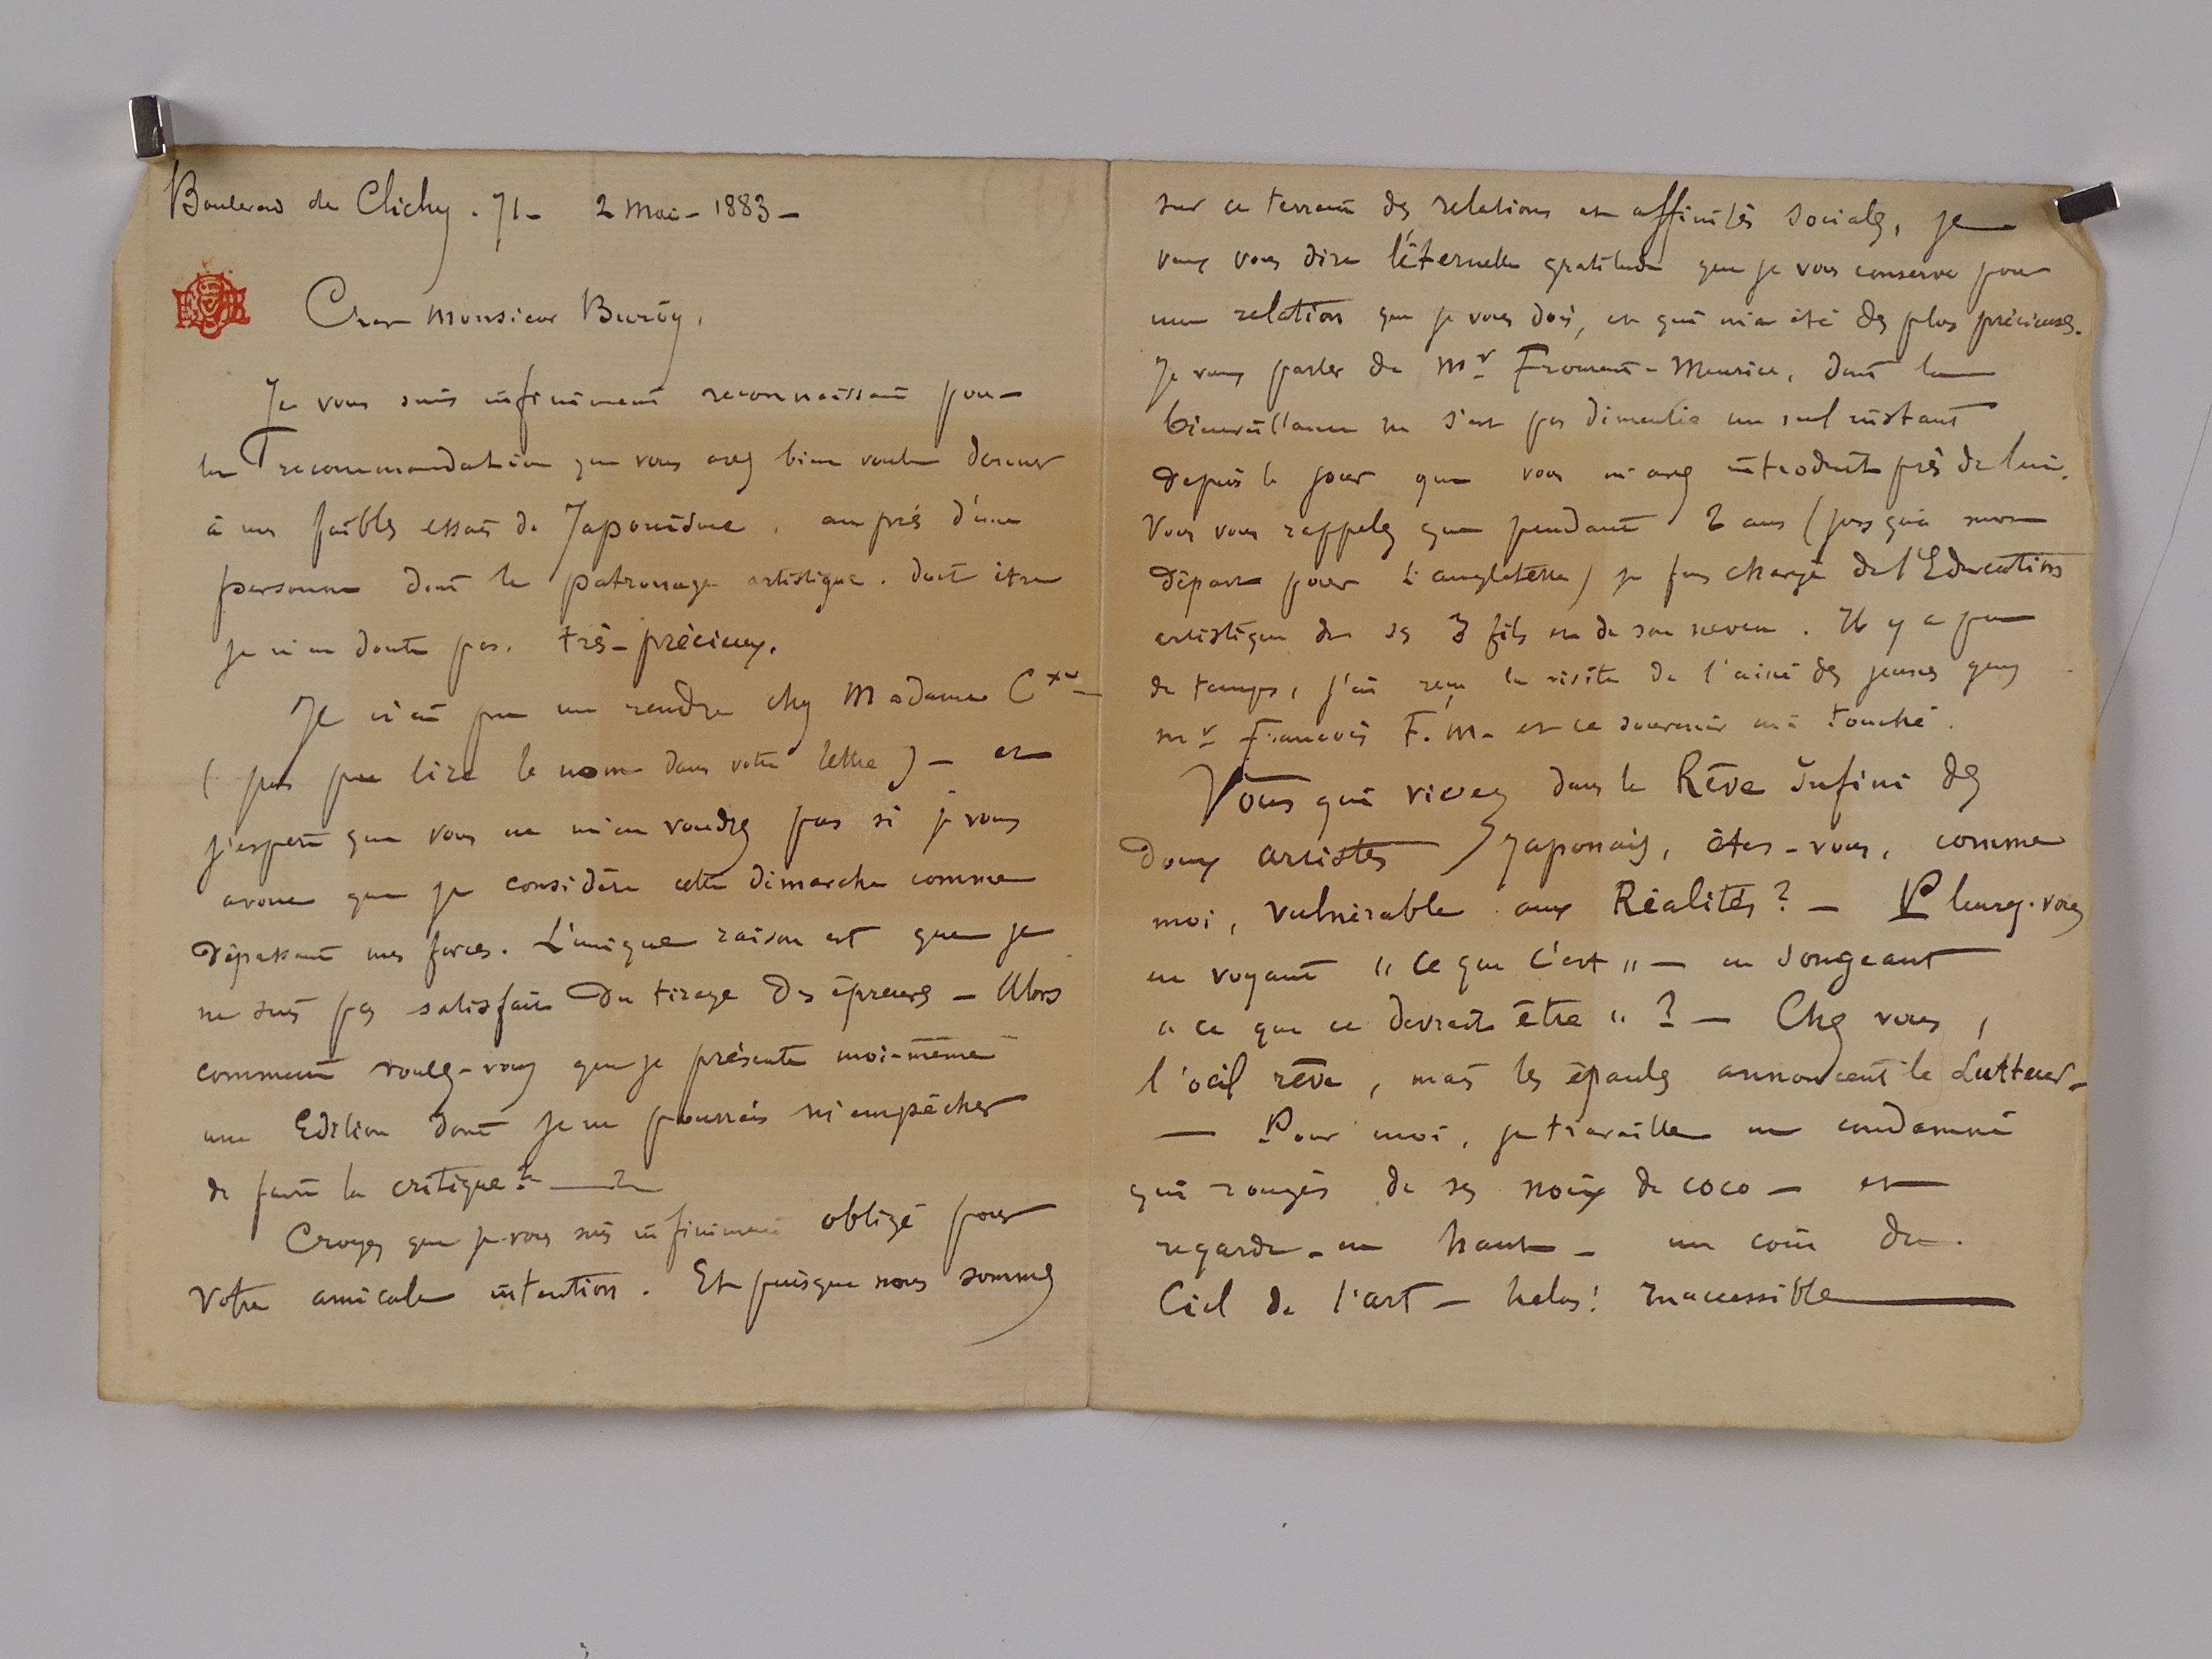 Boulevard de Clichy. 71 - 2 mai - 1883 -
Cher Monsieur Burty,
Je vous suis infiniment reconnaissant pour
la recommandation que vous avez bien voulu donner
à mes faibles essais de Japonisme, auprès d'une
personne dont le patronage artistique, doit être
je n'en doute pas, très-précieux.
Je n'ai pu me rendre chez Madame C
( pas pu lire le nom dans votre lettre ) - et
j'espère que vous ne m'en voudrez pas si je vous
avoue que je considère cette démarche comme
dépassant mes forces. L'unique raison est que je
ne suis pas satisfait du tirage des épreuves - Alors
comment voulez-vous que je présente moi-même
une Edition dont je ne pourrais m'empêcher
de faire la critique? -
Croyez que je vous suis infiniment obligé pour
votre amicale intention. Et puisque nous sommes
sur ce terrain des relations et affinités sociales, je
veux vous dire l'éternelle gratitude que je vous conserve pour
une relation que je vous dois, et qui m'a été des plus précieuses.
Je veux parler de Mr Froment-Meurice, dont la
bienveillance ne s'est pas démentie un seul instant
depuis le jour que vous m'avez introduit près de lui.
Vous vous rappelez que pendant 2 ans (jusqu'à mon
départ pour L'angleterre) je fus chargé de l'Education
artistique de ses 3 fils et de son neveu. Il y a peu
de temps, j'ai reçu la visite de l'ainé des jeunes gens
Mr François F. M. et ce souvenir m'a touché.
Vous qui vivez dans le Rêve Infini des
doux artistes Japonais, êtes-vous, comme
moi, vulnérable aux Réalités? - Pleurez-vous
en voyant "ce que c'est" - en songeant
"a ce que ce devrait être" ? - Chez vous,
l'oeil rêve, mais les épaules annoncent le Lutteur -
- Pour moi, je travaille en condamné
qui de ses noix de coco - et
regarde - en haut - un coin du
Ciel de l'art - helas! Inaccessible